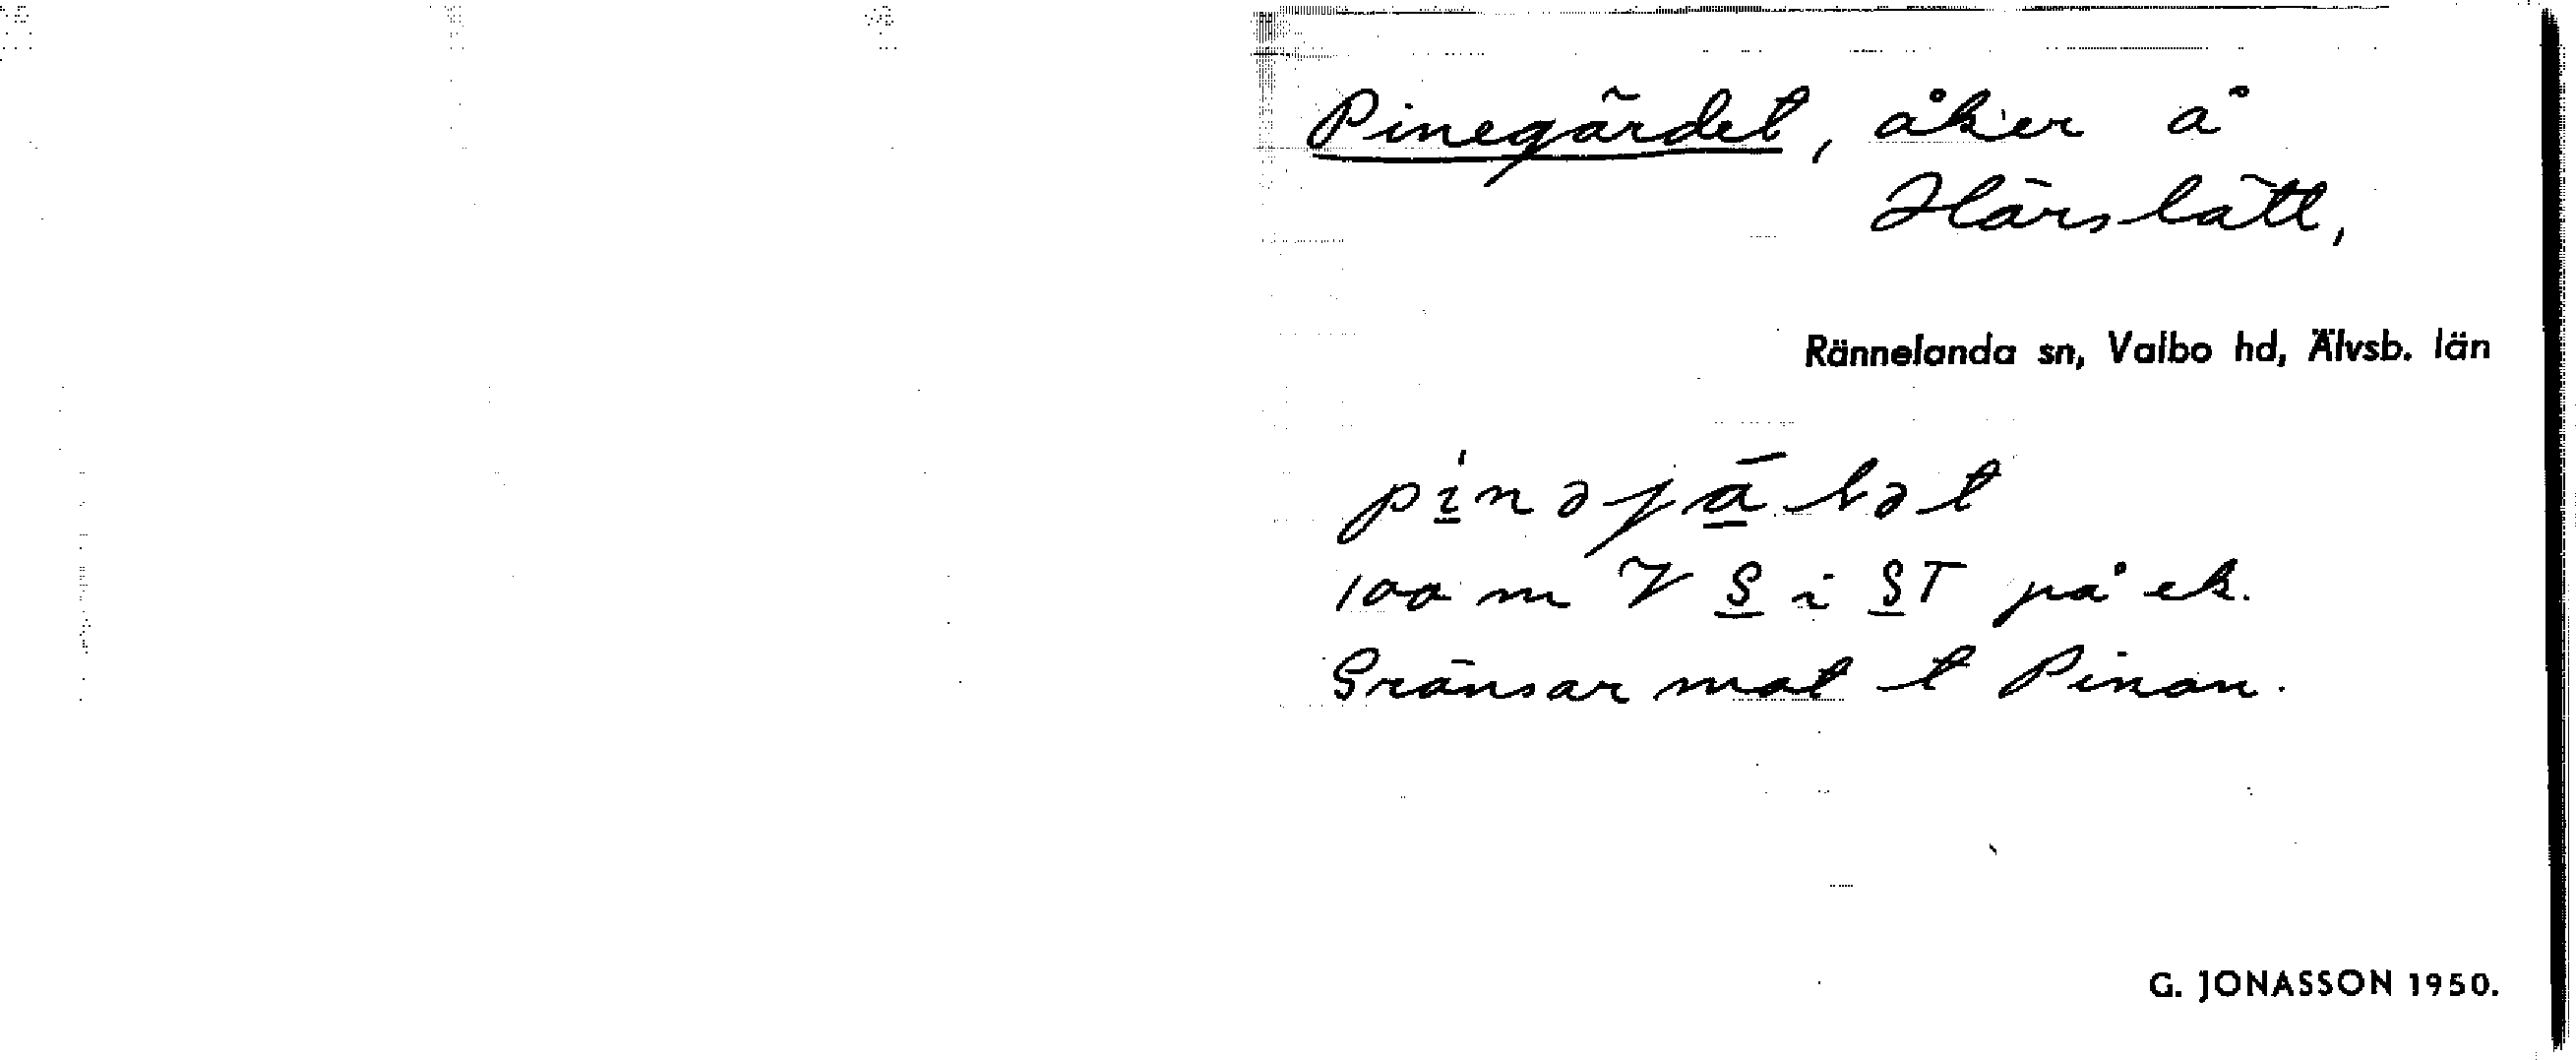 Pinegärdet, åker å
Härslätt,
Rännelanda sn, Valbo hd, Älvsb. län
100 m V S i ST på ek.
Gränsar mot t Pinan.
G. JONASSON 1950.